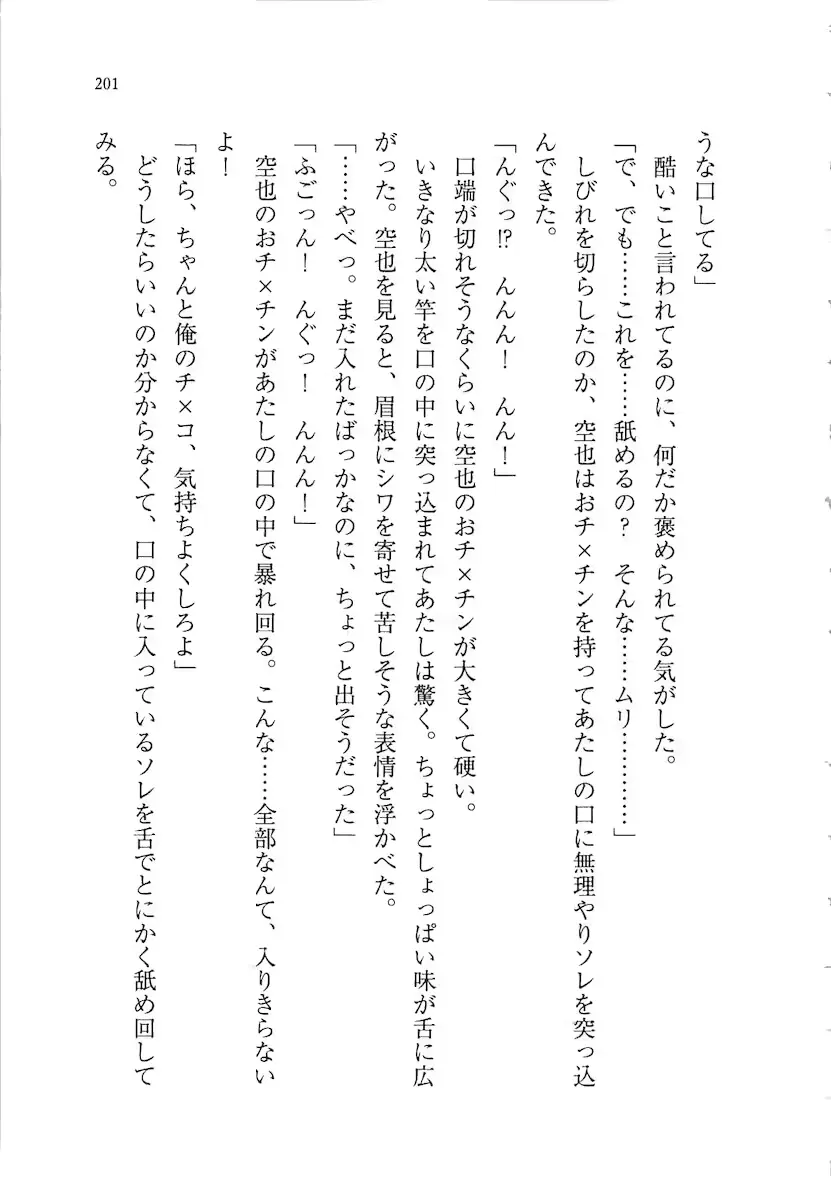 201
うな口してる」
酷いこと言われてるのに、何だか褒められてる気がした。
「で、でも……これを……舐めるの？　そんな……ムリ…………」
しびれを切らしたのか、空也はおチ×チンを持ってあたしの口に無理やりソレを突っ込
んできた。
「んぐっ!?　んんん！　んん！」
口端が切れそうなくらいに空也のおチ×チンが大きくて硬い。
いきなり太い竿を口の中に突っ込まれてあたしは驚く。ちょっとしょっぱい味が舌に広
がった。空也を見ると、眉根にシワを寄せて苦しそうな表情を浮かべた。
「……やべっ。まだ入れたばっかなのに、ちょっと出そうだった」
「ふごっん！　んぐっ！　んんん！」
空也のおチ×チンがあたしの口の中で暴れ回る。こんな……全部なんて、入りきらない
よ！
「ほら、ちゃんと俺のチ×コ、気持ちよくしろよ」
どうしたらいいのか分からなくて、口の中に入っているソレを舌でとにかく舐め回して
みる。